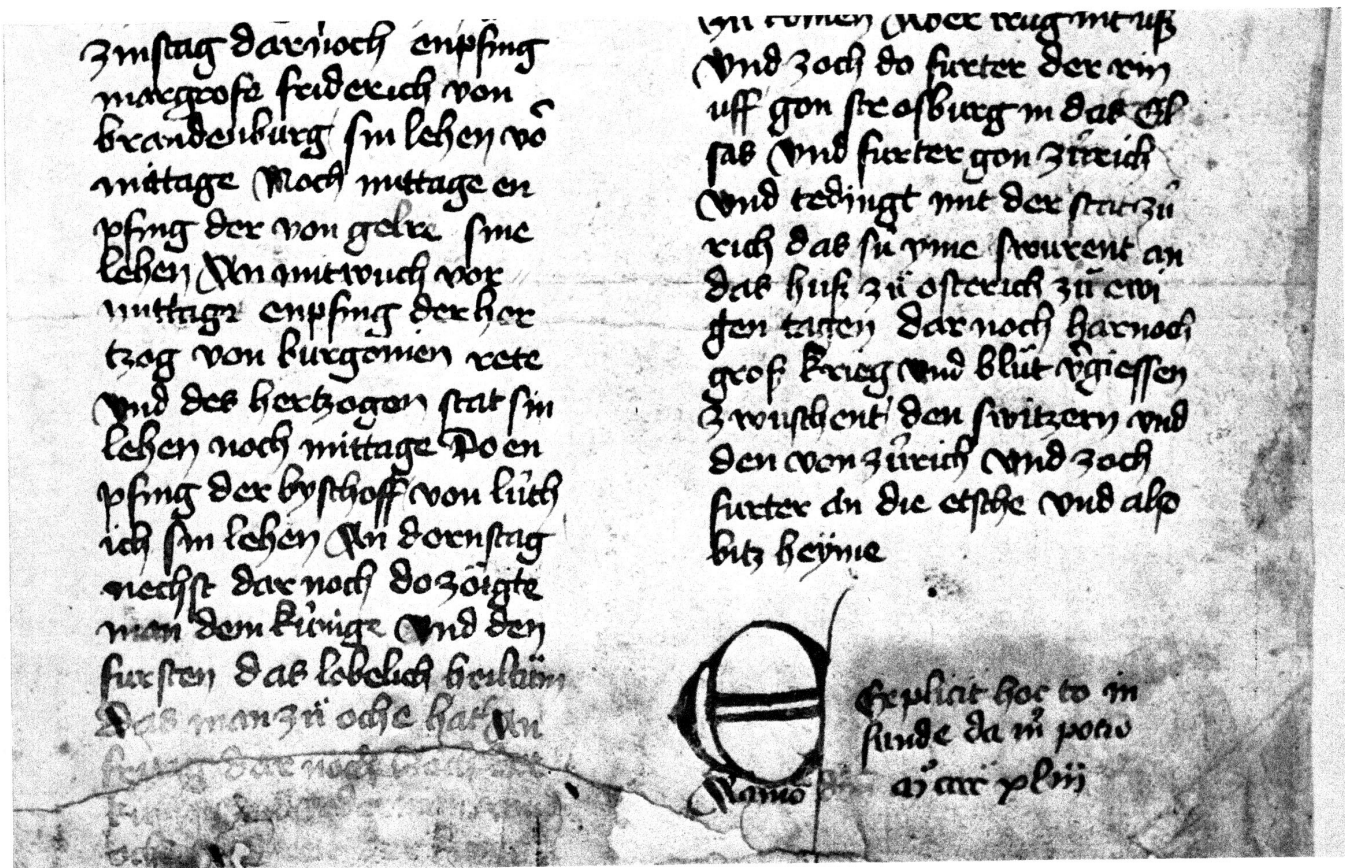 zinstag darnoch enpfing
margrofe friderich von
brandenburg sin lehen võ
mittage Noch mittage en
pfing der von gelre sine
lehen An mitwuch vor
mittage enpfing der her
tzog von burgonien rete
vnd des hertzogen stat sin
lehen noch mittage Do en
pfing der byschoff von lúth
ich sin lehen An dornstag
nechst dar noch do zoigte
man dem kúnige vnd den
fursten das lobelich heiltum
das man zů oche hat An
dar noch
zu komen Aber trug nit uß
vnd zoch do furter der rin
uff gon strosburg in das El
sas vnd furter gon zúrich
vnd tedingt mit der stat zú
rich das sú yme swurent an
das huß zů osterich zů ewi
gen tagen dar noch harnoch
groß krieg vnd blůt v̉giessen
zwuschent den switzern vnd
den von zúrich vnd zoch
furter an die etsche vnd also
bitz heyme
Explicit hoc to in
funde da